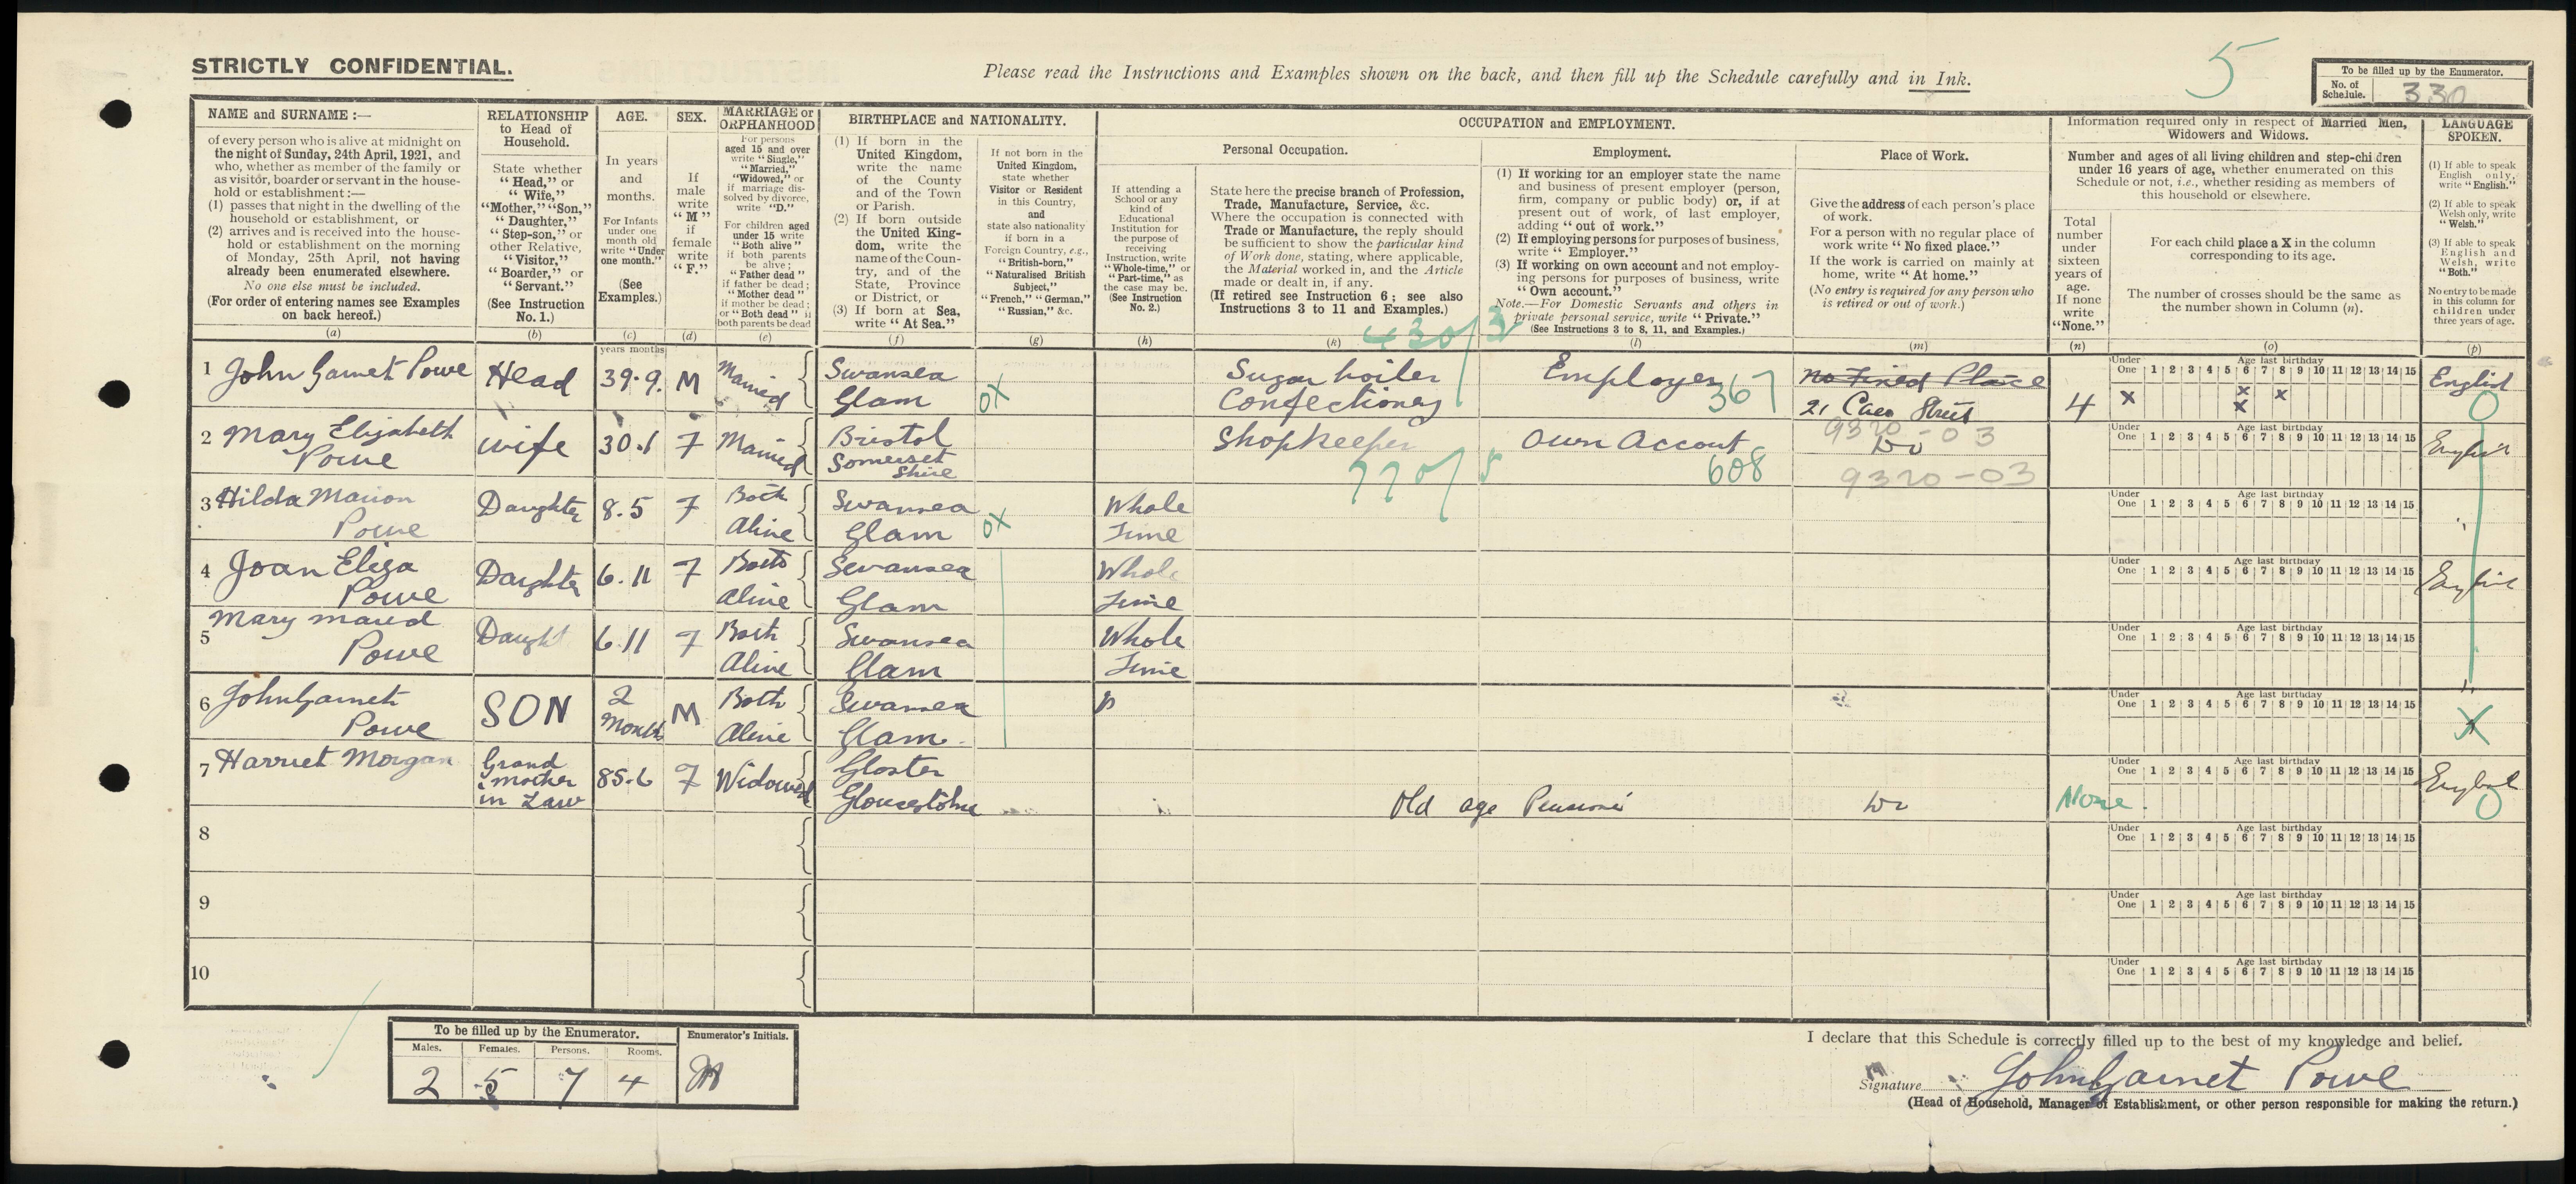 5
STRICTLY CONFIDENTIAL.
Please read the Instructions and Examples shown on the back, and then fill up the Schedule carefully and in Ink.
To be filled up by the Enumerator.
No. of Schedule. 330
NAME and SURNAME :—
of every person who is alive at midnight on
the night of Sunday, 24th April, 1921, and
who, whether as member of the family or
as visitor, boarder or servant in the house-
hold or establishment :—
(1) passes that night in the dwelling of the
household or establishment, or
(2) arrives and is received into the house-
hold or establishment on the morning
of Monday, 25th April, not having
already been enumerated elsewhere.
No one else must be included.
(For order of entering names see Examples
on back hereof.)
(a)
RELATIONSHIP
to Head of
Household.
State whether
"Head," or
"Wife,"
"Mother," "Son,"
"Daughter,"
"Step-son," or
other Relative,
"Visitor,"
"Boarder," or
"Servant."
(See Instruction
No. 1.)
(b)
AGE.
In years
and
months.
For Infants
under one
month old
write "Under
one month."
(See
Examples.)
(c)
SEX.
If
male
write
"M"
if
female
write
"F."
(d)
MARRIAGE or
ORPHANHOOD
For persons
aged 15 and over
write "Single,"
"Married,"
"Widowed," or
if marriage dis-
solved by divorce,
write "D."
For children aged
under 15 write
"Both alive"
if both parents
be alive;
"Father dead"
if father be dead;
"Mother dead"
if mother be dead;
or "Both dead" if
both parents be dead
(e)
BIRTHPLACE and NATIONALITY.
(1) If born in the
United Kingdom,
write the name
of the County
and of the Town
or Parish.
(2) If born outside
the United King-
dom, write the
name of the Coun-
try, and of the
State, Province
or District, or
(3) If born at Sea,
write "At Sea."
(f)
If not born in the
United Kingdom,
state whether
Visitor or Resident
in this Country,
and
state also nationality
if born in a
Foreign Country, e.g.,
"British-born,"
"Naturalised British
Subject,"
"French," "German,"
"Russian," &c.
(g)
OCCUPATION and EMPLOYMENT.
If attending a
School or any
kind of
Educational
Institution for
the purpose of
receiving
Instruction, write
"Whole-time," or
"Part-time," as
the case may be.
(See Instruction
No. 2.)
(h)
Personal Occupation.
State here the precise branch of Profession,
Trade, Manufacture, Service, &c.
Where the occupation is connected with
Trade or Manufacture, the reply should
be sufficient to show the particular kind
of Work done, stating, where applicable,
the Material worked in, and the Article
made or dealt in, if any.
(If retired see Instruction 6; see also
Instructions 3 to 11 and Examples.)
(k)
Employment.
(1) If working for an employer state the name
and business of present employer (person,
firm, company or public body) or, if at
present out of work, of last employer,
adding "out of work."
(2) If employing persons for purposes of business,
write "Employer."
(3) If working on own account and not employ-
ing persons for purposes of business, write
"Own account."
Note.—For Domestic Servants and others in
private personal service, write "Private."
(See Instructions 3 to 8, 11, and Examples.)
(l)
Place of Work.
Give the address of each person's place
of work.
For a person with no regular place of
work write "No fixed place."
If the work is carried on mainly at
home, write "At home."
(No entry is required for any person who
is retired or out of work.)
(m)
Information required only in respect of Married Men,
Widowers and Widows.
Number and ages of all living children and step-children
under 16 years of age, whether enumerated on this
Schedule or not, i.e., whether residing as members of
this household or elsewhere.
Total
number
under
sixteen
years of
age.
If none
write
"None."
(n)
For each child place a X in the column
corresponding to its age.
The number of crosses should be the same as
the number shown in Column (n).
(o)
LANGUAGE
SPOKEN.
(1) If able to speak
English only,
write "English."
(2) If able to speak
Welsh only, write
"Welsh."
(3) If able to speak
English and
Welsh, write
"Both."
No entry to be made
in this column for
children under
three years of age.
(p)
430/3
years months
1 John Garnet Powe Head 39.9. M Married Swansea Glam OX Sugar boiler Confectionery Employer 367 No Fixed Place 21 Caer Street 9320-03 4 English
Under One 1 2 3 4 5 6 7 8 9 10 11 12 13 14 15 Age last birthday
X X X X
2 Mary Elizabeth Powe wife 30.1 F Married Bristol Somerset shire Shopkeeper 770/5 Own Account 608 Do 9320-03 English
Under One 1 2 3 4 5 6 7 8 9 10 11 12 13 14 15 Age last birthday
3 Hilda Marion Powe Daughter 8.5 F Both Alive Swansea Glam OX Whole Time "
Under One 1 2 3 4 5 6 7 8 9 10 11 12 13 14 15 Age last birthday
4 Joan Eliza Powe Daughter 6.11 F Both Alive Swansea Glam Whole Time English
Under One 1 2 3 4 5 6 7 8 9 10 11 12 13 14 15 Age last birthday
5 Mary Maud Powe Daught 6.11 F Both Alive Swansea Glam Whole Time "
Under One 1 2 3 4 5 6 7 8 9 10 11 12 13 14 15 Age last birthday
6 John Garnet Powe SON 2 Months M Both Alive Swansea Glam. X
Under One 1 2 3 4 5 6 7 8 9 10 11 12 13 14 15 Age last birthday
7 Harriet Morgan Grand mother in Law 85.6 F Widowed Gloster Old age Pensioner None. English
Under One 1 2 3 4 5 6 7 8 9 10 11 12 13 14 15 Age last birthday
8
Under One 1 2 3 4 5 6 7 8 9 10 11 12 13 14 15 Age last birthday
9
Under One 1 2 3 4 5 6 7 8 9 10 11 12 13 14 15 Age last birthday
10
Under One 1 2 3 4 5 6 7 8 9 10 11 12 13 14 15 Age last birthday
To be filled up by the Enumerator.
Males. Females. Persons. Rooms.
2 5 7 4
Enumerator's Initials.
I declare that this Schedule is correctly filled up to the best of my knowledge and belief.
Signature John Garnet Powe
(Head of Household, Manager of Establishment, or other person responsible for making the return.)